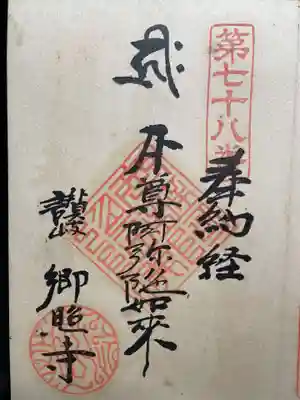 第七十八番
奉納経
本尊阿弥陀如来
讃岐 郷照寺